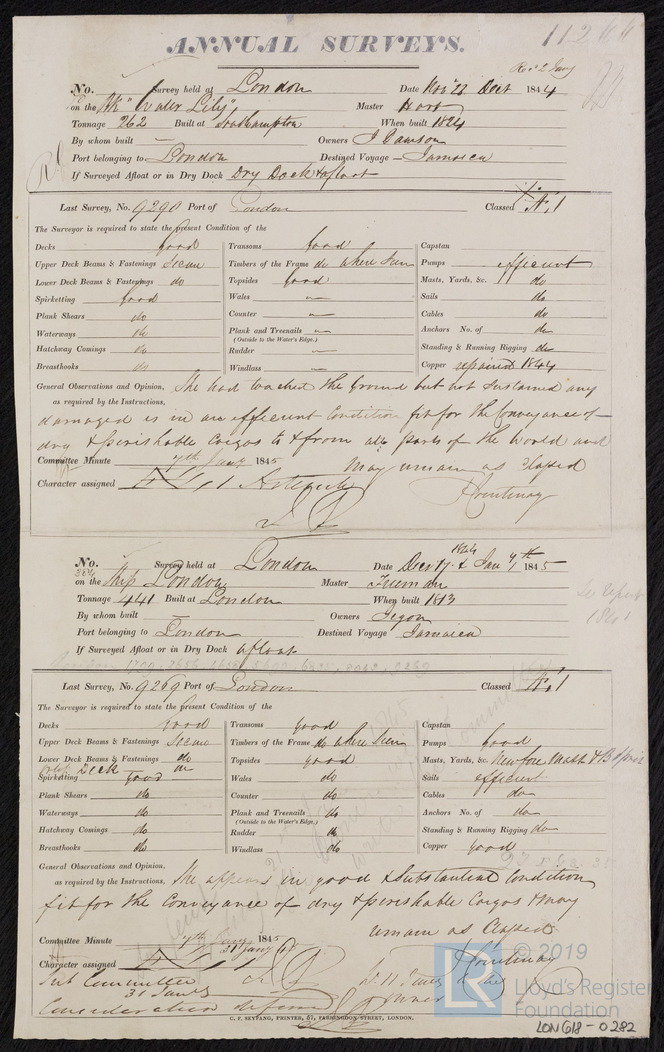 ANNUAL SURVEYS.
11266
Rec'd 2 Jany
No. Survey held at London Date Nov 22 Dec 1844
on the Bk "Water Lily" Master Hoar
Tonnage 262 Built at Southampton When built 1824
By whom built — Owners J Dawson
Port belonging to London Destined Voyage Jamaica
If Surveyed Afloat or in Dry Dock Dry Dock & afloat
Last Survey, No. 9290 Port of London Classed Æ 1
The Surveyor is required to state the present Condition of the
Decks good Transoms good Capstan
Upper Deck Beams & Fastenings Secure Timbers of the Frame do where seen Pumps efficient
Lower Deck Beams & Fastenings do Topsides good Masts, Yards, &c. do
Spirketting good Wales — Sails do
Plank Shears do Counter — Cables do
Waterways do Plank and Treenails — Anchors No. of do
(Outside to the Water's Edge.)
Hatchway Comings do Rudder — Standing & Running Rigging do
Breasthooks do Windlass — Copper repaired 1844
General Observations and Opinion, She had touched the Ground but not sustained any
as required by the Instructions,
damaged is in an efficient Condition fit for the Conveyance of
dry & perishable Cargos to & from all parts of the World and
Committee Minute 7th Jany 1845 May remain as Classed
Character assigned Æ 1
Courtenay
No. Survey held at London Date Decr 17 1844 & Jany 7th 1845
364
on the Ship London Master Freeman
Tonnage 441 Built at London When built 1813
By whom built — Owners
Port belonging to London Destined Voyage Jamaica
If Surveyed Afloat or in Dry Dock afloat
Last Survey, No. 9269 Port of London Classed Æ 1
The Surveyor is required to state the present Condition of the
Decks good Transoms good Capstan
Upper Deck Beams & Fastenings Secure Timbers of the Frame do where seen Pumps good
Lower Deck Beams & Fastenings do Topsides good Masts, Yards, &c. New fore Mast & B Sprit
Deck
Spirketting good Wales do Sails efficient
Plank Shears do Counter do Cables do
Waterways do Plank and Treenails do Anchors No. of do
(Outside to the Water's Edge.)
Hatchway Comings do Rudder do Standing & Running Rigging do
Breasthooks do Windlass do Copper good
General Observations and Opinion, She appears in good & Substantial Condition
as required by the Instructions,
fit for the Conveyance of dry & perishable Cargos & may
remain as Classed
Committee Minute 7th Jany 1845
31 Jany
Courtenay
Character assigned Æ 1
Sub Committee
31 Jany
Consideration deferred
C. F. SEYFANG, PRINTER, 57, FARRINGDON STREET, LONDON.
© 2019
LR
Lloyd's Register
Foundation
LON618-0282